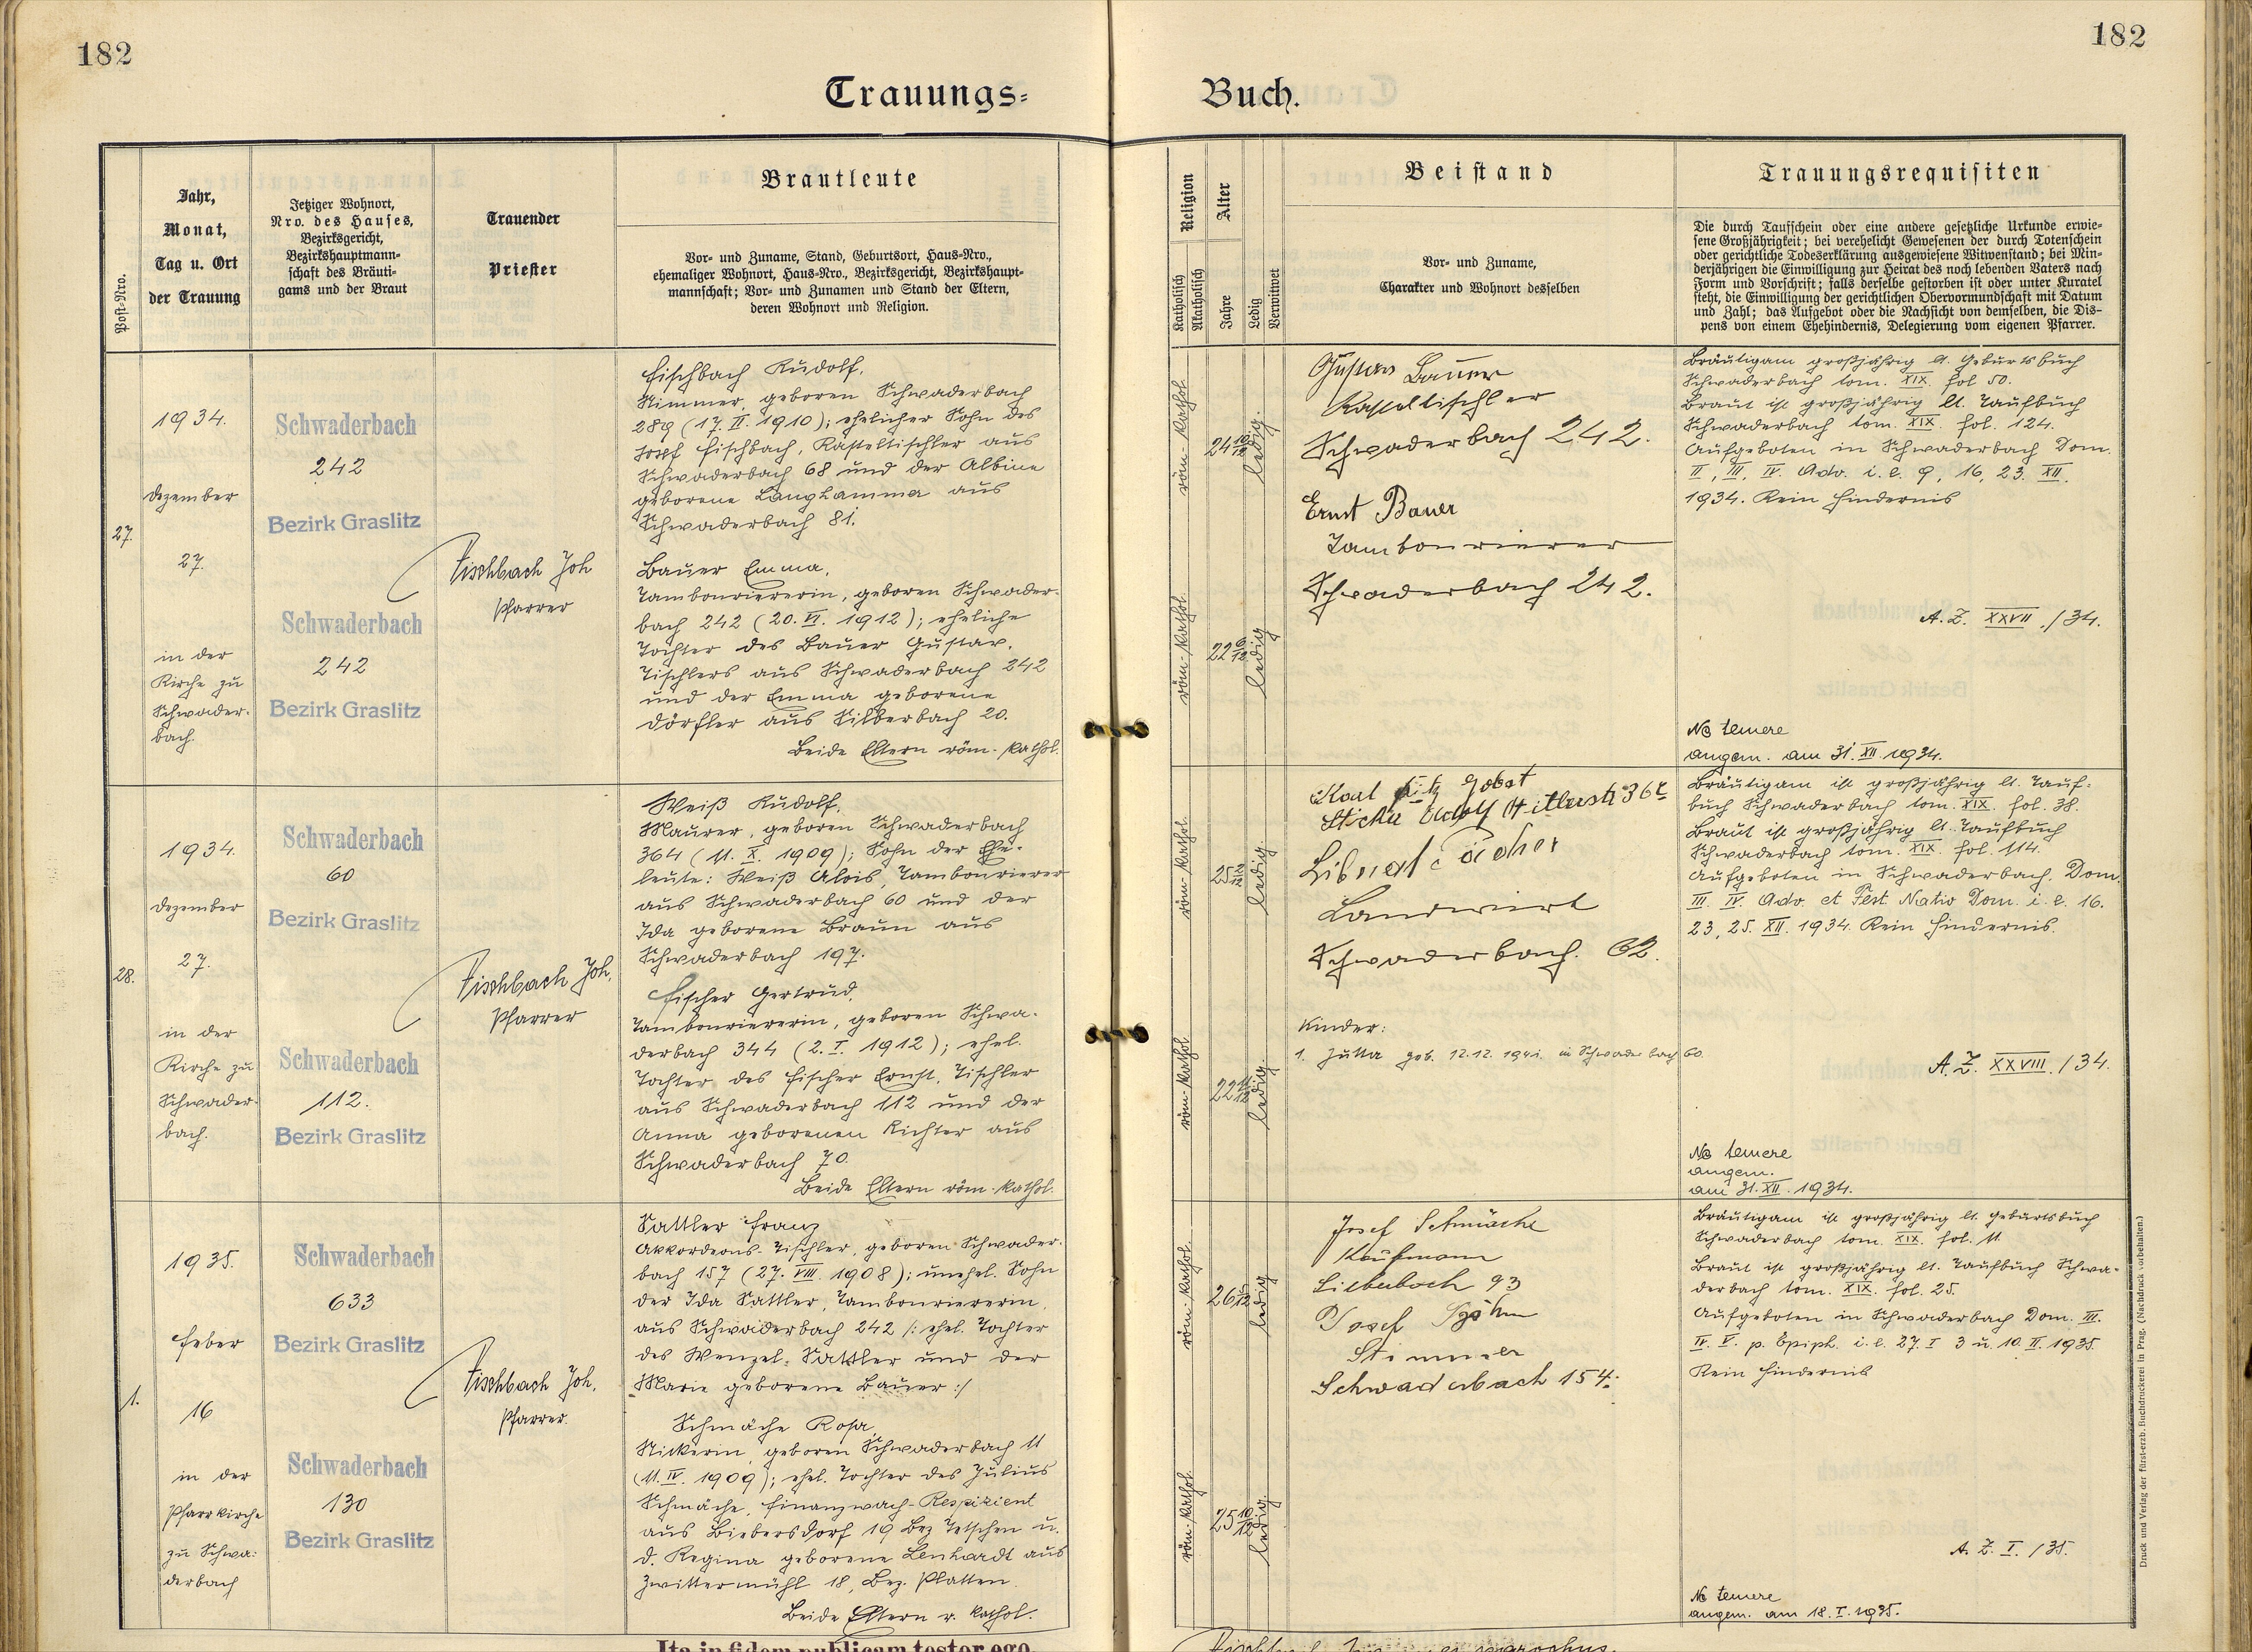 182
182
Trauungs=
Buch.
Post-Nro.
Jahr,
Monat,
Tag u. Ort
der Trauung
Jetziger Wohnort,
Nro. des Hauses,
Bezirksgericht,
Bezirkshauptmann-
schaft des Bräuti-
gams und der Braut
Trauender
Priester
Brautleute
Vor- und Zuname, Stand, Geburtsort, Haus-Nro.,
ehemaliger Wohnort, Haus-Nro., Bezirksgericht, Bezirkshaupt-
mannschaft; Vor- und Zunamen und Stand der Eltern,
deren Wohnort und Religion.
Religion
Katholisch
Akatholisch
Alter
Jahre
Ledig
Verwitwet
Beistand
Vor- und Zuname,
Charakter und Wohnort desselben
Trauungsrequisiten
Die durch Taufschein oder eine andere gesetzliche Urkunde erwie-
sene Großjährigkeit; bei verehelicht Gewesenen der durch Totenschein
oder gerichtliche Todeserklärung ausgewiesene Witwenstand; bei Min-
derjährigen die Einwilligung zur Heirat des noch lebenden Vaters nach
Form und Vorschrift; falls derselbe gestorben ist oder unter Kuratel
steht, die Einwilligung der gerichtlichen Obervormundschaft mit Datum
und Zahl; das Aufgebot oder die Nachsicht von demselben, die Dis-
pens von einem Ehehindernis, Delegierung vom eigenen Pfarrer.
27.
1934.
Dezember
27.
in der
Kirche zu
Schwader-
bach.
Schwaderbach
242
Bezirk Graslitz
Schwaderbach
242
Bezirk Graslitz
Fischbach Joh
Pfarrer
Fischbach Rudolf,
Stimmer, geboren Schwaderbach
289 (17. II. 1910); ehelicher Sohn des
Josef Fischbach, Kasteltischler aus
Schwaderbach 68 und der Albine
geborene Langhamma aus
Schwaderbach 81.
Bauer Emma,
Tambouriererin, geboren Schwader-
bach 242 (20. VI. 1912); eheliche
Tochter des Bauer Gustav,
Tischlers aus Schwaderbach 242
und der Emma geborene
Dörfler aus Silberbach 20.
Beide Eltern röm.-kathol.
röm-kathol.
24 10/12
ledig.
röm-kathol.
22 6/12
ledig
Gustav Bauer
Kasteltischler
Schwaderbach 242.
Ernst Bauer
Tambourierer
Schwaderbach 242.
Bräutigam großjährig lt. Geburtsbuch
Schwaderbach tom. XIX. fol 50.
Braut ist großjährig lt. Taufbuch
Schwaderbach tom. XIX. fol. 124.
Aufgeboten in Schwaderbach Dom.
II, III, IV. Adv. i. e. 9, 16, 23. XII.
1934. Kein Hindernis
A. Z. XXVII. /34.
Ne temere
angem. am 31. XII. 1934.
28.
1934.
Dezember
27.
in der
Kirche zu
Schwader-
bach.
Schwaderbach
60
Bezirk Graslitz
Schwaderbach
112.
Bezirk Graslitz
Fischbach Joh.
Pfarrer
Weiß Rudolf,
Maurer, geboren Schwaderbach
364 (11. X. 1909); Sohn der Ehe-
leute: Weiß Alois, Tambourierer
aus Schwaderbach 60 und der
Ida geborene Braun aus
Schwaderbach 197.
Fischer Gertrud,
Tambouriererin, geboren Schwa-
derbach 344 (2. I. 1912); ehel.
Tochter des Fischer Ernst, Tischler
aus Schwaderbach 112 und der
Anna geborenen Richter aus
Schwaderbach 70.
Beide Eltern röm.-kathol.
röm-kathol.
25 2/12
ledig.
röm-kathol.
22 11/12
ledig.
Karl
Schwaderbach. 62.
Landwirt
Kinder:
1. Jutta geb. 12.12. 1941. in Schwaderbach 60.
Bräutigam ist großjährig lt. Tauf-
buch Schwaderbach tom. XIX. fol. 38.
Braut ist großjährig lt. Taufbuch
Schwaderbach tom. XIX. fol. 114.
Aufgeboten in Schwaderbach. Dom.
III. IV. Adv. et Fest. Nativ Dom. i. e. 16.
23, 25. XII. 1934. Kein Hindernis.
A. Z. XXVIII. /34.
Ne temere
angem.
am 31. XII. 1934.
1.
1935.
Feber
16
in der
Pfarrkirche
zu Schwa-
derbach
Schwaderbach
633
Bezirk Graslitz
Schwaderbach
130
Bezirk Graslitz
Fischbach Joh.
Pfarrer.
Sattler Franz
Akkordeons-Tischler, geboren Schwader-
bach 157 (27. VIII. 1908); unehel. Sohn
der Ida Sattler, Tambouriererin,
aus Schwaderbach 242 /: ehel. Tochter
des Wenzel Sattler und der
Marie geborene Bauer :/
Schmäche Rosa,
Stickerin, geboren Schwaderbach 11
(11. IV. 1909); ehel. Tochter des Julius
Schmäche, Finanzwach-Respizient
aus Biebersdorf 19 Bez Tetschen u.
d. Regina geborene Lenhardt aus
Zwittermühl 18, Bez. Platten.
Beide Eltern r. kathol.
röm-kathol.
26
ledig
röm-kathol.
25 10/12
ledig.
Josef Schmäche
Kaufmann
Silberbach 93
Josef
Stimmer
Schwaderbach 154.
Bräutigam ist großjährig lt. Geburtsbuch
Schwaderbach tom. XIX. fol. 11.
Braut ist großjährig lt. Taufbuch Schwa-
derbach tom. XIX. fol. 25.
Aufgeboten in Schwaderbach Dom. III.
IV. V. p. Epiph. i. e. 27. I 3 u. 10. II. 1935.
Kein Hindernis
A. Z. I. /35.
Ne temere
angem. am 18. I. 1935.
Druck und Verlag der fürst-erzb. Buchdruckerei in Prag. (Nachdruck vorbehalten.)
Ita in fidem publicam testor ego.